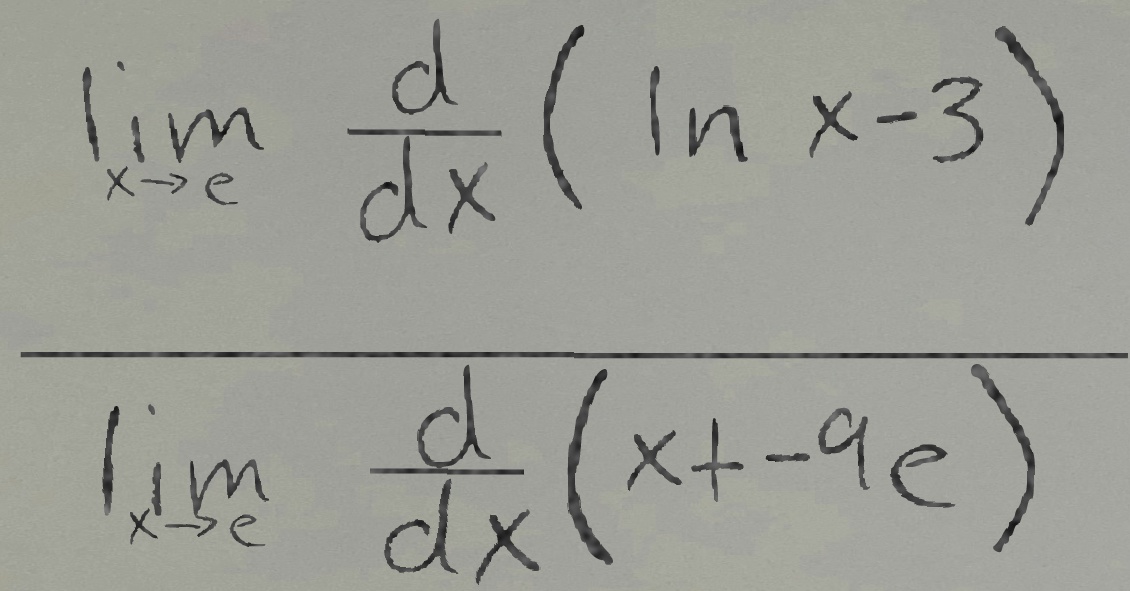 \frac{\lim_{x \to e} \frac{d}{dx} \left( \ln x - 3 \right)}{\lim_{x \to e} \frac{d}{dx} \left( x + -9e \right)}